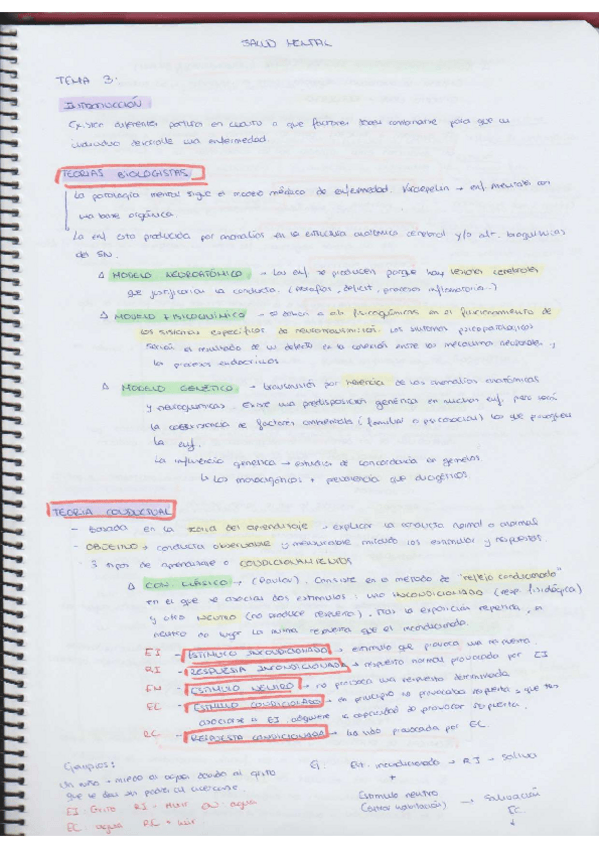 SALUD MENTAL
TEMA 3.
INTRODUCCIÓN
Existen diferentes posturas en cuanto a que factores deben combinarse para que un
individuo desarrolle una enfermedad.
TEORIAS BIOLOGISTAS
La patología mental sigue el modelo médico de enfermedad. Kraepelin → enf mentales con
una base orgánica.
La enf esta producida por anomalías en la estructura anatómica cerebral y/o alt. bioquímicas
del SN.
Δ MODELO NEUROATÓMICO → Las enf se producen porque hay lesiones cerebrales
que justificarían la conducta. (atrofias, deficit, procesos inflamatorios..)
Δ MODELO FISICOQUÍMICO → Se deben a alt fisicoquímicas en el funcionamiento de
los sistemas específicos de neurotransmisión. Los síntomas psicopatológicos
serían el resultado de un defecto en la conexión entre los mecanismos neuronales y
los procesos endocrinos.
Δ MODELO GENÉTICO → transmisión por herencia de las anomalías anatómicas
y neuroquímicas. Existe una predisposición genética en muchas enf. pero será
la coexistencia de factores ambientales (familiar o psicosocial) los que provoquen
la enf.
La influencia genetica → estudios de concordancia en gemelos
↳ Los monocigóticos + prevalencia que dicigóticos.
TEORIA CONDUCTUAL
- Basada en la teoría del aprendizaje → explicar la conducta normal o anormal
- OBJETIVO → conducta observable y medurable midiendo los estimulos y respuestas.
- 3 tipos de aprendizaje o CONDICIONAMIENTOS
Δ CON. CLÁSICO → (Paulov). Consiste en el método de "reflejo condicionado"
en el que se asocian dos estimulos: uno INCONDICIONADO (resp. fisiológica)
y otro NEUTRO (no produce respuesta). Tras la exposición repetida, el
neutro da lugar la misma respuesta que el incondicionado.
EI - ESTIMULO INCONDICIONADO → estimulo que provoca una respuesta.
RI - RESPUESTA INCONDICIONADA → respuesta normal provocada por EI
EN - ESTIMULO NEUTRO → no provoca una respuesta determinada
EC - ESTIMULO CONDICIONADO → en principio no provocaba respuesta y que tras
asociarse a EI adquiere la capacidad de provocar respuesta.
RC - RESPUESTA CONDICIONADA → ha sido provocada por EC
Ejemplos:
Un niño + miedo al agua dando un grito
que le dan sin
EI Grito RI - llorar EN agua
EC agua RC + llorar
Ej: Est. incondicionado → RI → saliva
+
Estimulo neutro → Salivación
(entrar habitación)
EC
↓